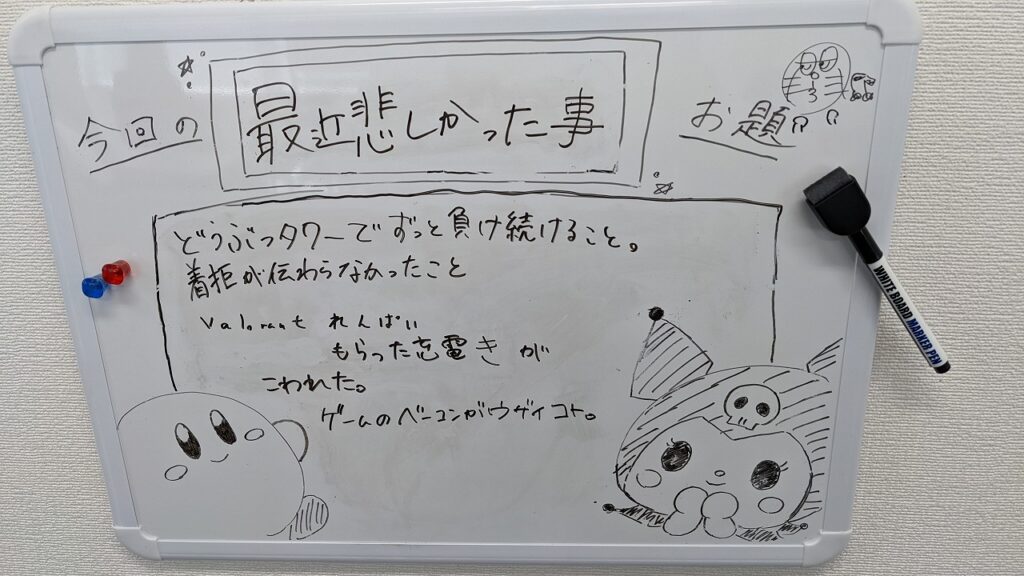 今回の
最近悲しかった事
お題
どうぶつタワーでずっと負け続けること。
着拒が伝わらなかったこと
valorant れんぱい
もらった充電きが
こわれた。
ゲームのベーコンがウザイコト。
WHITE BOARD MARKER PEN